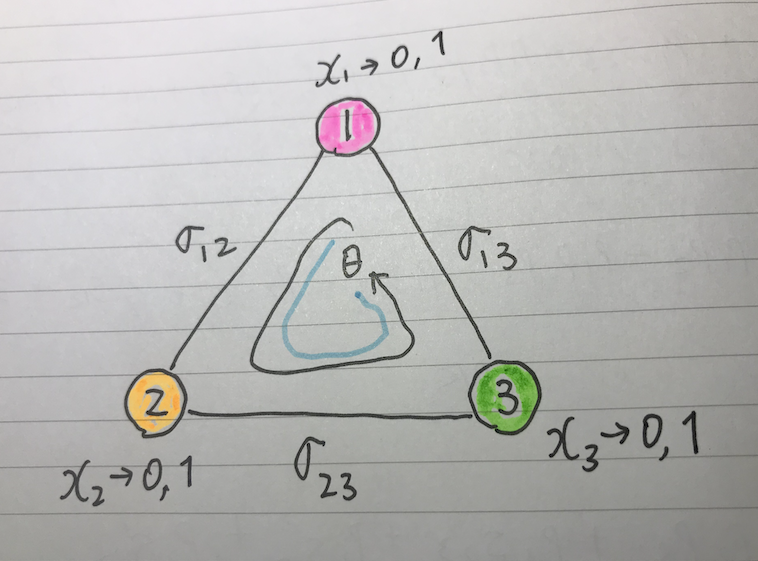 x₁→0,1
1
σ₁₂
θ
σ₁₃
2
3
x₂→0,1
σ₂₃
x₃→0,1